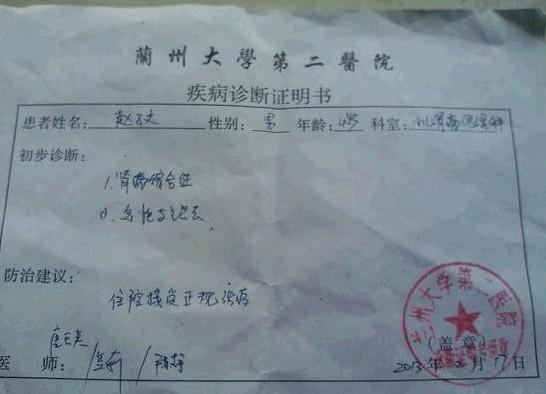 蘭州大學第二醫院
疾病诊断证明书
患者姓名: 赵 性别: 男 年龄: 4岁 科室: 小儿肾病
初步诊断:
1. 肾病综合征
2. 急性支气管炎
防治建议:
住院接受正规治疗
兰州大学第二医院
(盖章)
医 师:
2013年 月 7日